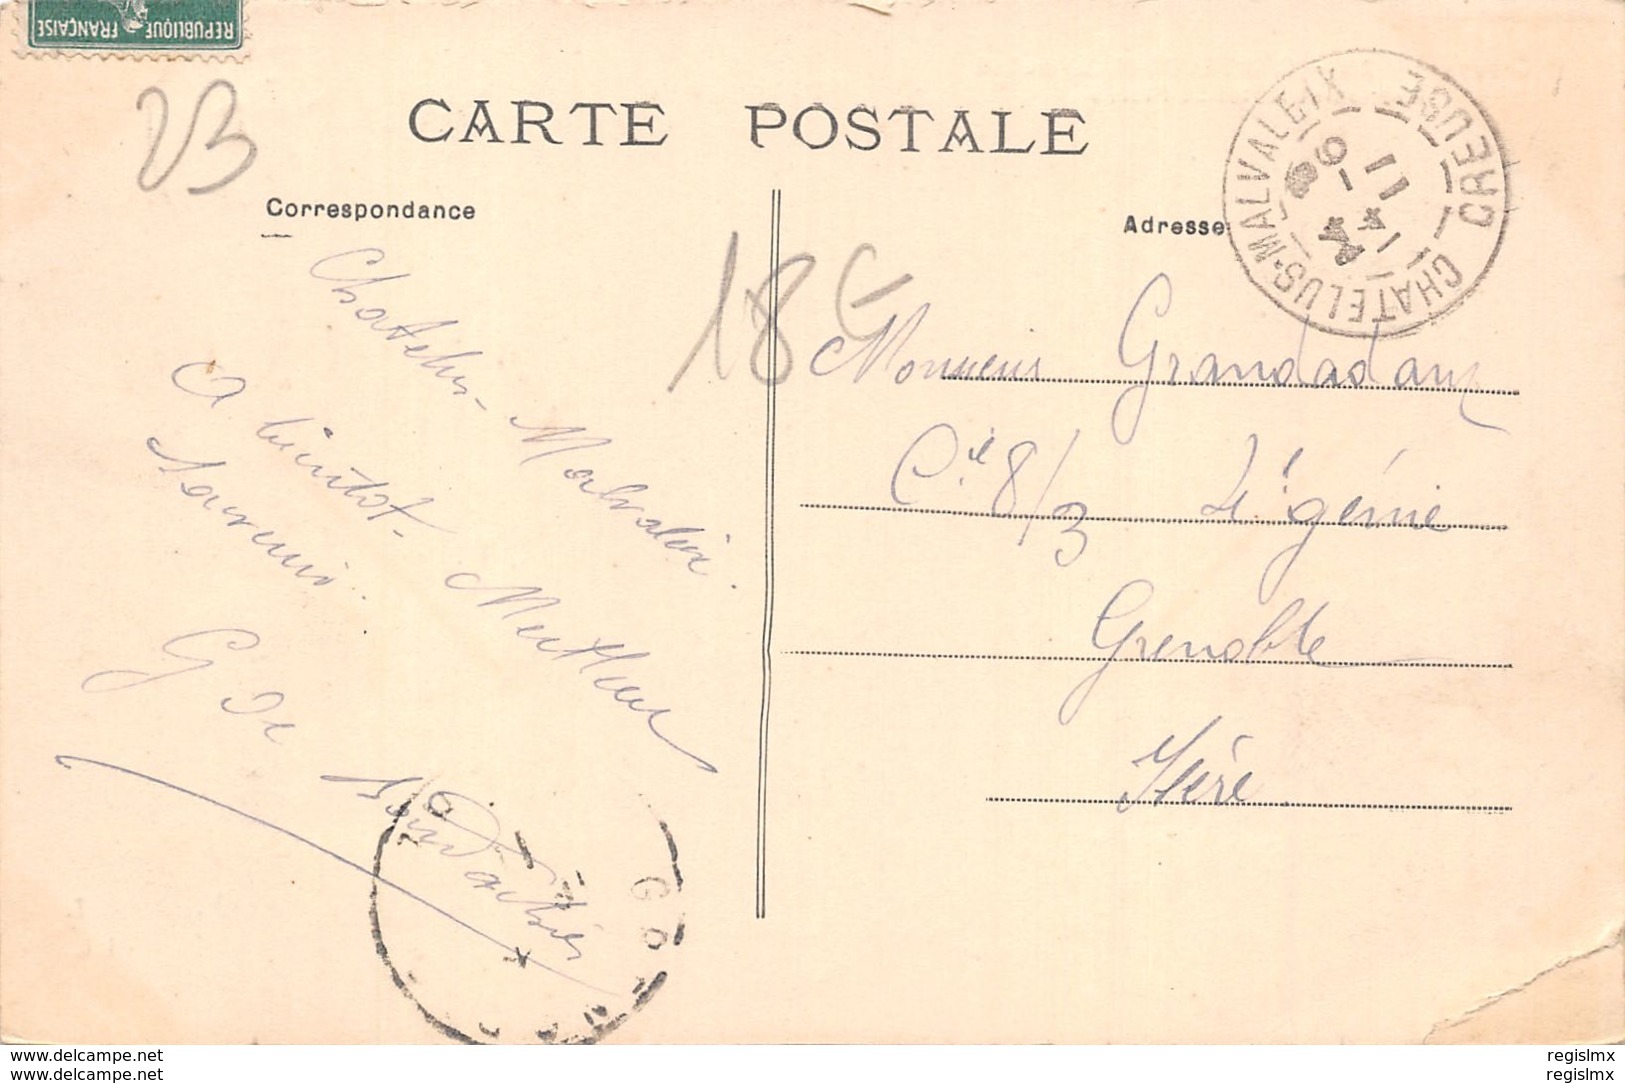 REPUBLIQUE FRANÇAISE
23
CARTE POSTALE
Correspondance
Adresse
CHATELUS-MALVALEIX CREUSE
11
18 €
Chatelus-Malvaleix.
A bientot - Meilleur
Souvenir.
G de
Monsieur Grandadam
Cie 8/3 4e génie
Grenoble
Isère
delcampe.net
regislmx
delcampe.net
regislmx